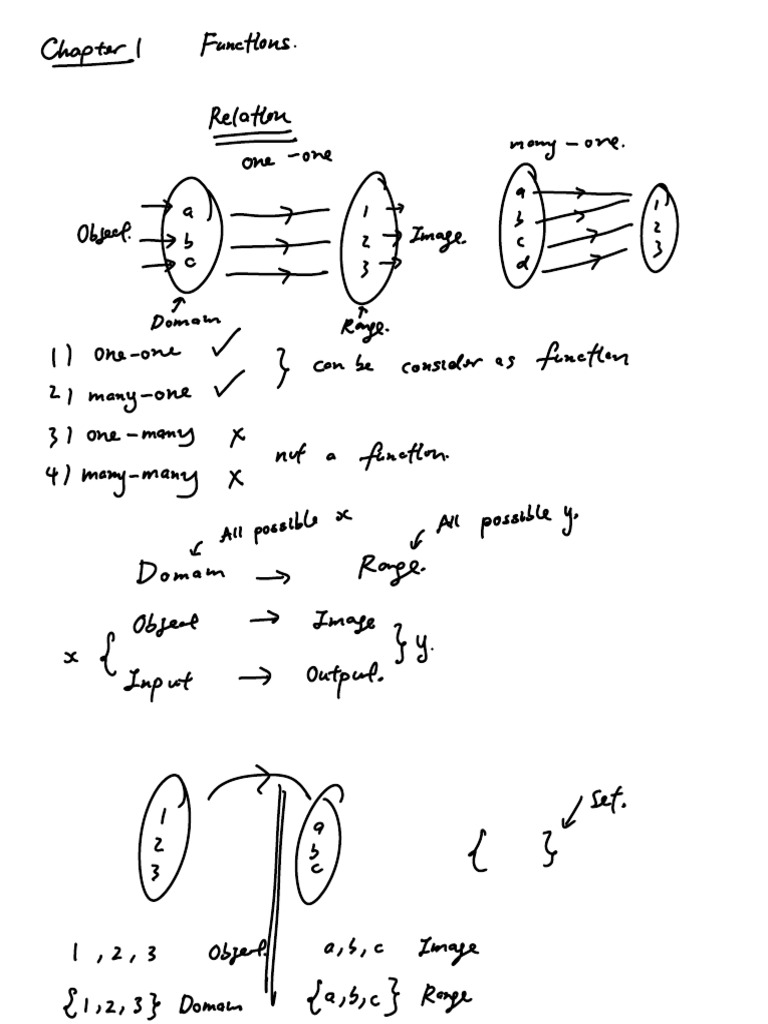 Chapter 1 Functions.
Relation
one-one many-one.
Object. a 1 Image. a 1
b 2 b 2
c 3 c 3
d
Domain Range.
1) one-one ✓
2) many-one ✓ } can be consider as function
3) one-many x
4) many-many x not a function.
All possible x All possible y.
Domain → Range.
Object → Image
x { } y.
Input → Output.
1 a
2 b
3 c
{ } Set.
1, 2, 3 Object a, b, c Image
{1, 2, 3} Domain {a, b, c} Range